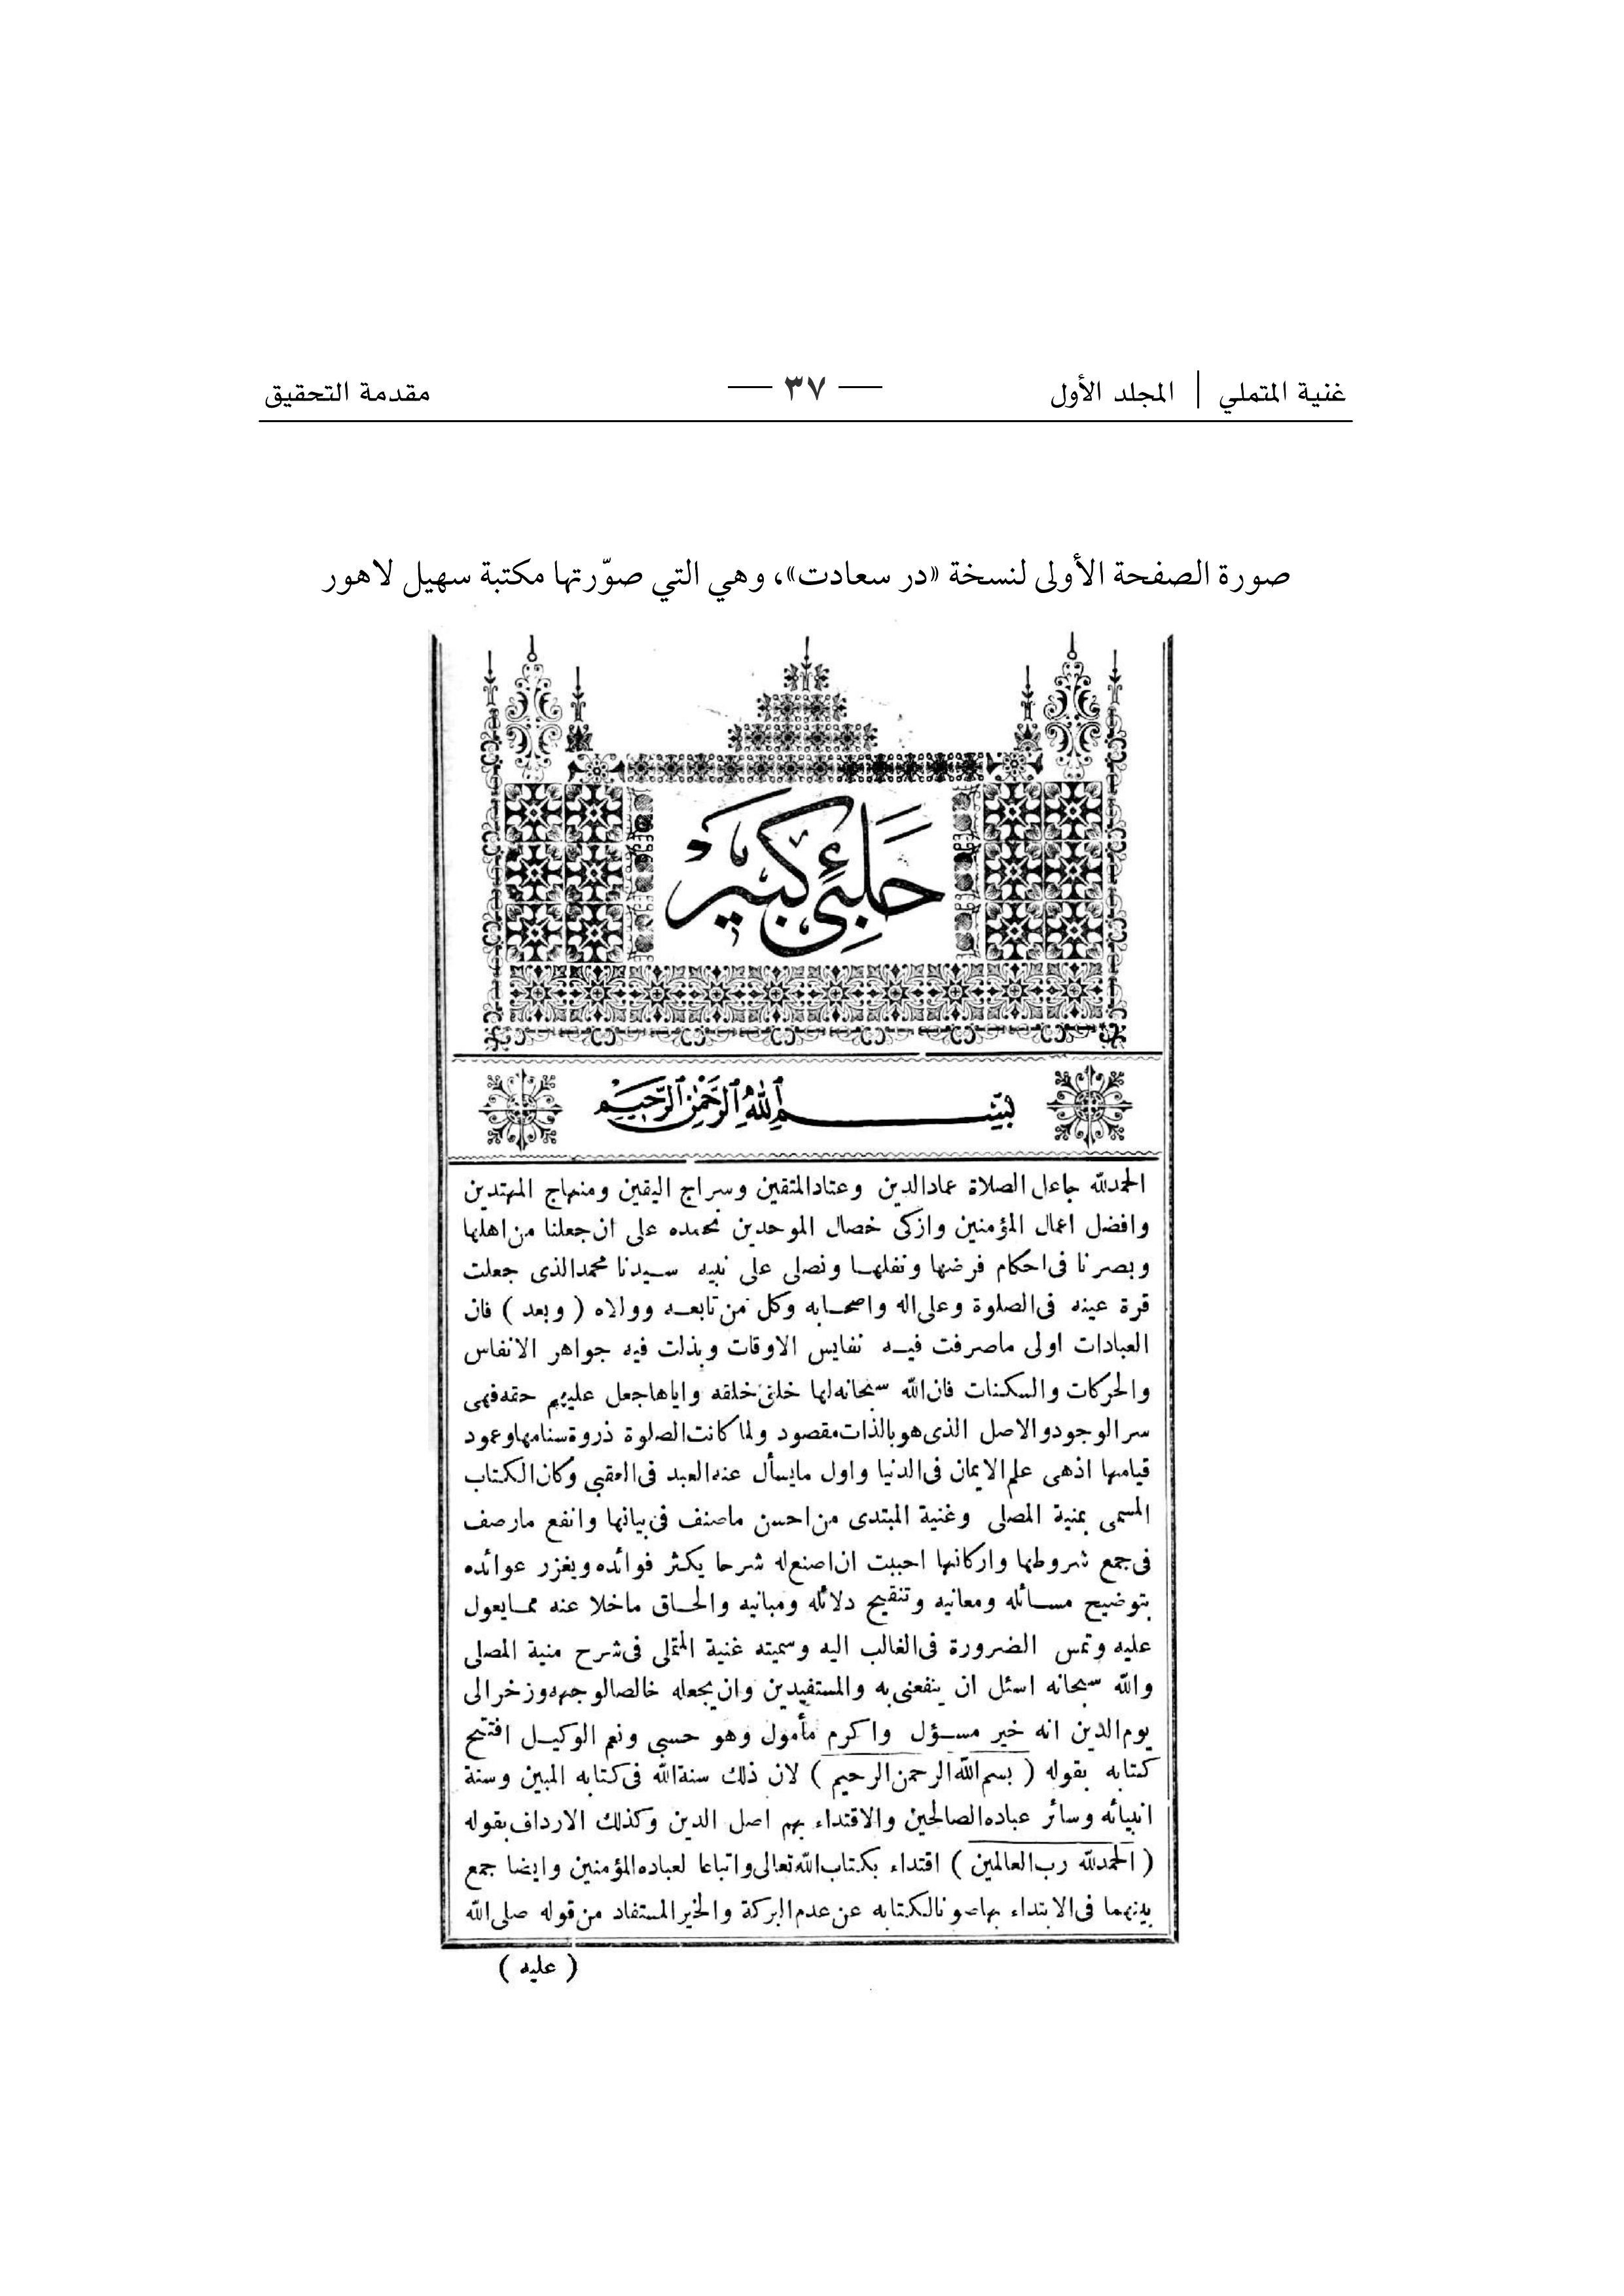 غنية المتملي | المجلد الأول — ٣٧ — مقدمة التحقيق
صورة الصفحة الأولى لنسخة «در سعادت»، وهي التي صوّرتها مكتبة سهيل لاهور
حلبئ كبير
بسم الله الرحمن الرحيم
الحمدلله جاعل الصلاة عمادالدين وعتادالمتقين وسراج اليقين ومنهاج المهتدين
وافضل اعمال المؤمنين وازكى خصال الموحدين نحمده على ان جعلنا من اهلها
وبصرنا فى احكام فرضها ونفلهـا ونصلى على نبيه سـيدنا محمدالذى جعلت
قرة عينه فى الصلوة وعلى اله واصحـابه وكل من تابعـه ووالاه ( وبعد ) فان
العبادات اولى ماصرفت فيـه نفايس الاوقات وبذلت فيه جواهر الانفاس
والحركات والسكنات فان الله سبحانه لها خلق خلقه واياها جعل عليهم حقه فهى
سر الوجود والاصل الذى هو بالذات مقصود ولما كانت الصلوة ذروة سنامها وعمود
قيامها اذهى علم الايمان فى الدنيا واول مايسأل عنه العبد فى العقبى وكان الكتاب
المسمى بمنية المصلى وغنية المبتدى من احسن ماصنف فى بيانها وانفع مارصف
فى جمع شروطها واركانها احببت ان اصنع له شرحا يكثر فوائده ويغزر عوائده
بتوضيح مسـائله ومعانيه وتنقيح دلائله ومبانيه والحـاق ماخلا عنه ممـايعول
عليه وتمس الضرورة فى الغالب اليه وسميته غنية المتملى فى شرح منية المصلى
والله سبحانه اسئل ان ينفعنى به والمستفيدين وان يجعله خالصا لوجهه وزخرا لى
يوم الدين انه خير مسـؤل واكرم مأمول وهو حسبى ونعم الوكيـل افتتح
كتابه بقوله ( بسم الله الرحمن الرحيم ) لان ذلك سنة الله فى كتابه المبين وسنة
انبيائه وسائر عباده الصالحين والاقتداء بهم اصل الدين وكذلك الارداف بقوله
( الحمدلله رب العالمين ) اقتداء بكتاب الله تعالى واتباعا لعباده المؤمنين وايضا جمع
بينهما فى الابتداء بها صونا لكتابه عن عدم البركة والخير المستفاد من قوله صلى الله
( عليه )